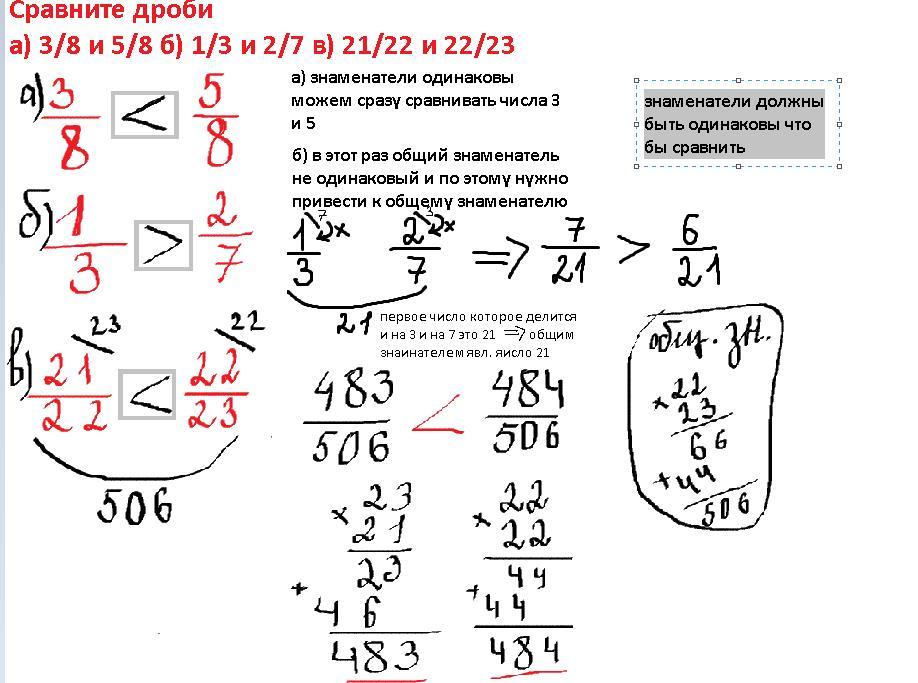 Сравните дроби
а) 3/8 и 5/8 б) 1/3 и 2/7 в) 21/22 и 22/23
а) 3/8 < 5/8
а) знаменатели одинаковы
можем сразу сравнивать числа 3
и 5
знаменатели должны
быть одинаковы что
бы сравнить
б) в этот раз общий знаменатель
не одинаковый и по этому нужно
привести к общему знаменателю
б) 1/3 > 2/7
1/3 2/7 => 7/21 > 6/21
21
первое число которое делится
и на 3 и на 7 это 21 => общим
знаинателем явл. яисло 21
23 22
в) 21/22 < 22/23
506
483/506 < 484/506
общ. зн.
× 22
23
66
+ 44
506
× 23
21
23
+ 46
483
× 22
22
44
+ 44
484